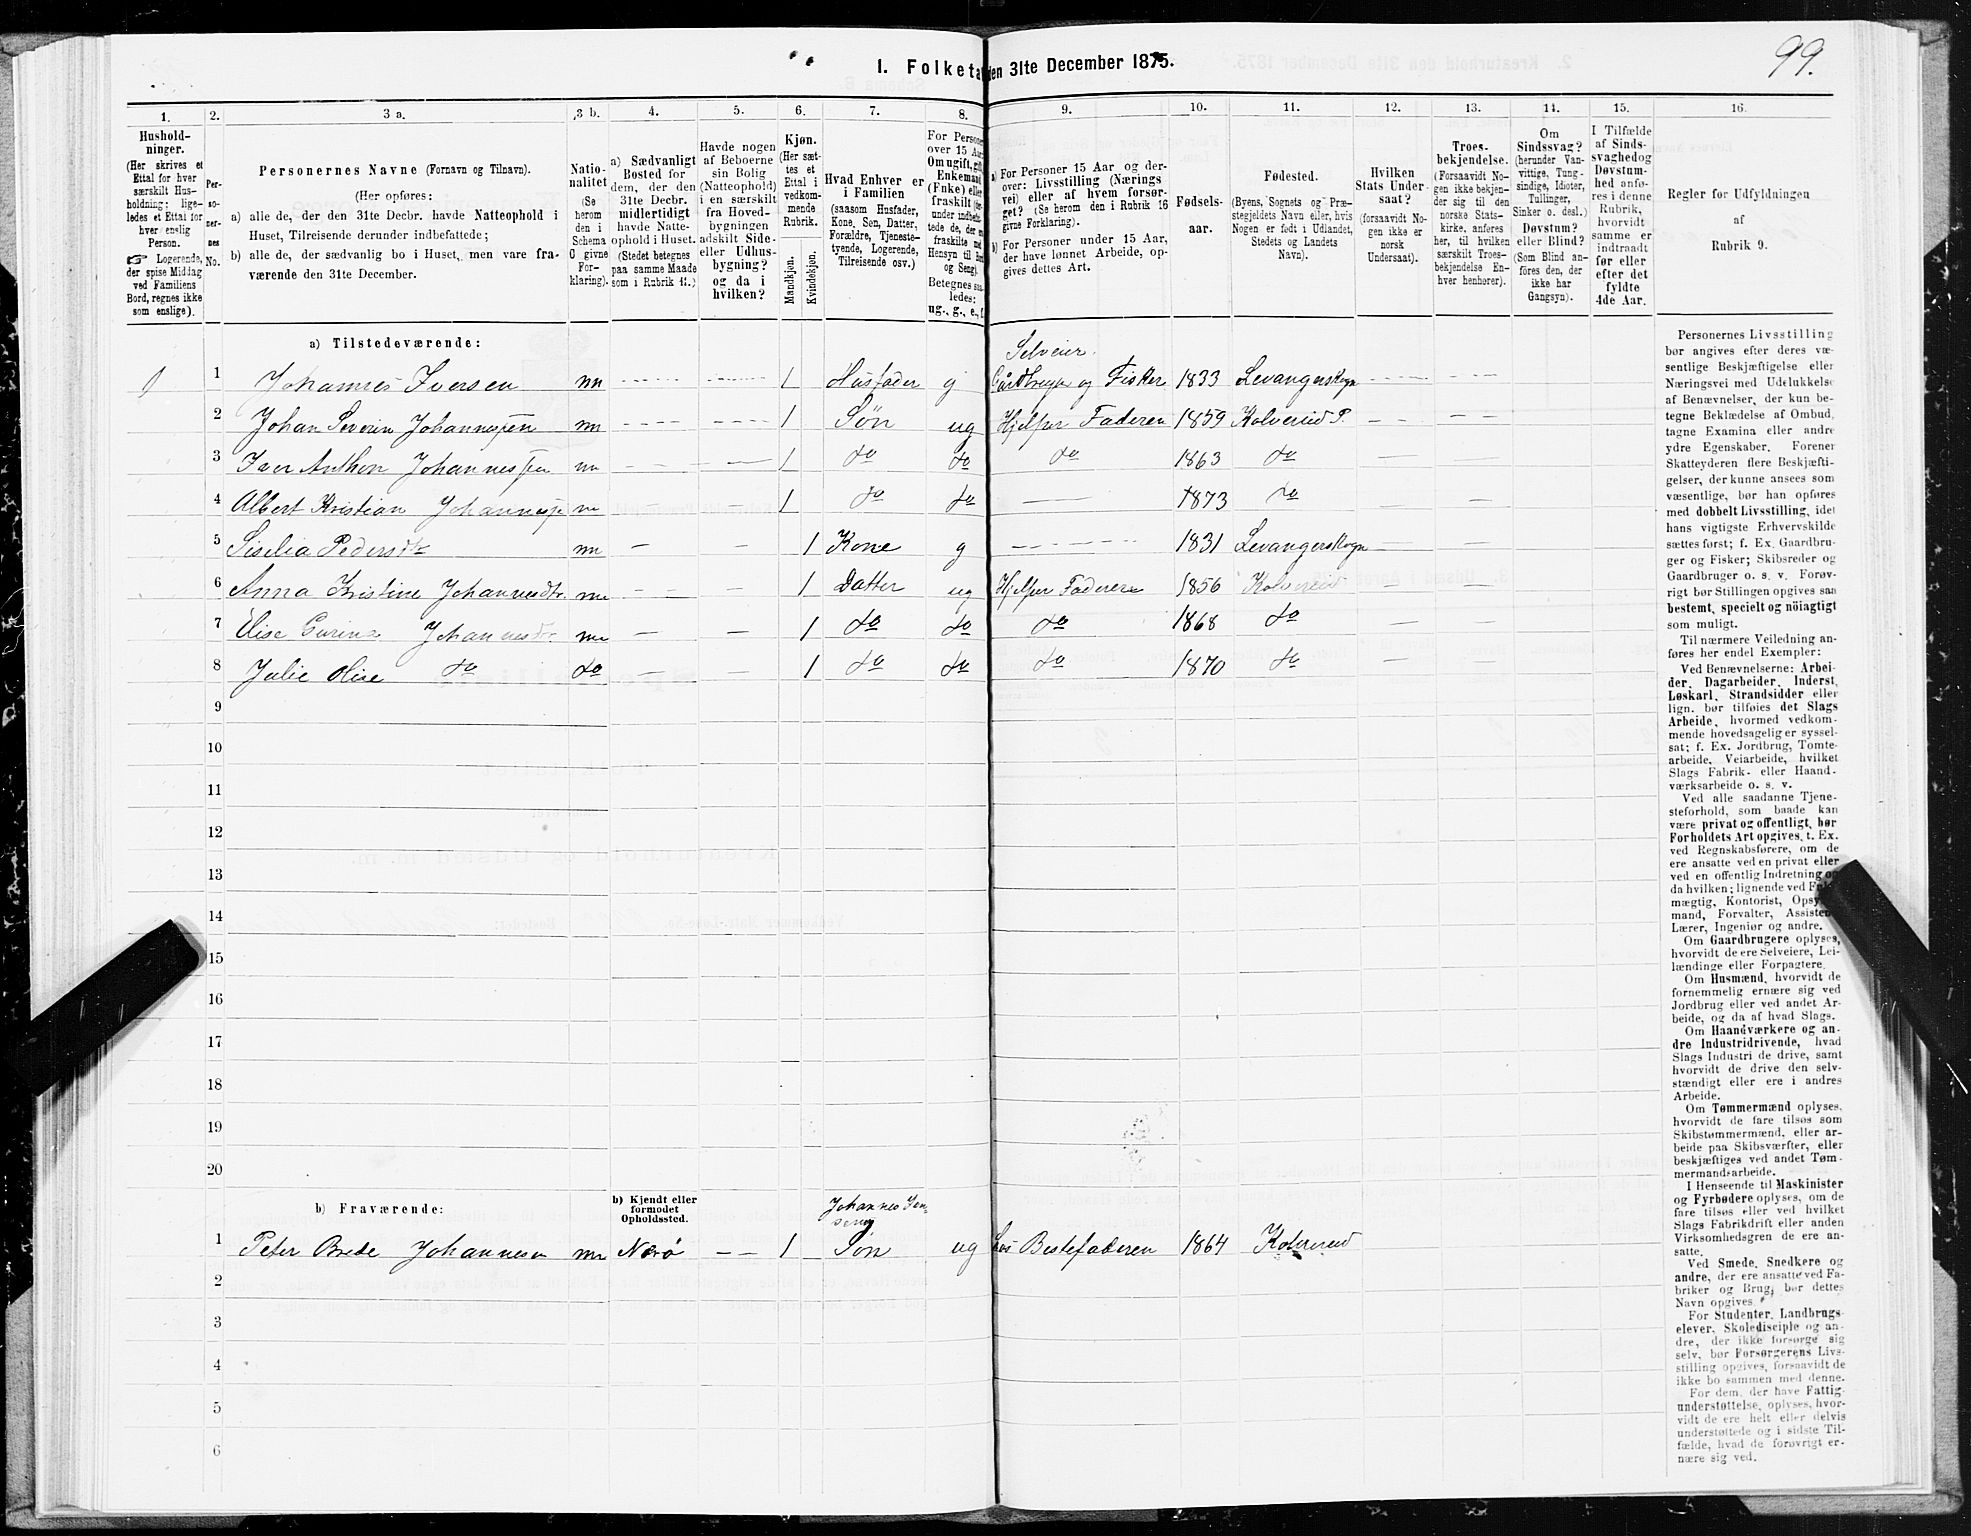 99.
I. Folketa den 31te December 1875.
1. 2. 3 a. 3 b. 4. 5. 6. 7. 8. 9. 10. 11. 12. 13. 14. 15. 16.
Hushold-
ninger.
(Her skrives et
Ettal for hver
særskilt Hus-
holdning; lige-
ledes et Ettal for
hver enslig
Person.
☞ Logerende,
der spise Middag
ved Familiens
Bord, regnes ikke
som enslige).
Per-
so-
ner-
nes
No.
Personernes Navne (Fornavn og Tilnavn).
(Her opføres:
a) alle de, der den 31te Decbr. havde Natteophold i
Huset, Tilreisende derunder indbefattede;
b) alle de, der sædvanlig bo i Huset, men vare fra-
værende den 31te December.
Natio-
nalitet
(Se
herom
den i
Schema
C givne
For-
klaring).
a) Sædvanligt
Bosted for
dem, der den
31te Decbr.
midlertidigt
havde Natte-
ophold i Huset.
(Stedet betegnes
paa samme Maade
som i Rubrik 11.)
Havde nogen
af Beboerne
sin Bolig
(Natteophold)
i en særskilt
fra Hoved-
bygningen
adskilt Side-
eller Udhus-
bygning?
og da i
hvilken?
Kjøn.
(Her sæt-
tes et
Ettal i
vedkom-
mende
Rubrik.
Mandkjøn.
Kvindekjøn.
Hvad Enhver er
i Familien
(saasom Husfader,
Kone, Søn, Datter,
Forældre, Tjeneste-
tyende, Logerende,
Tilreisende osv.)
For Persone
over 15 Aa
Om ugift, gif
Enkemand
(Enke) elle
fraskilt
Betegnes saa-
ledes:
ug., g., e., f.
a) For Personer 15 Aar og der-
over: Livsstilling (Nærings
vei) eller af hvem forsør-
get? (Se herom den i Rubrik 16
givne Forklaring).
b) For Personer under 15 Aar,
der have lønnet Arbeide, op-
gives dettes Art.
Fødsels-
aar.
Fødested.
(Byens, Sognets og Præ-
stegjeldets Navn eller, hvis
Nogen er født i Udlandet,
Stedets og Landets
Navn).
Hvilken
Stats Under-
saat?
(forsaavidt No-
gen ikke er
norsk
Undersaat).
Troes-
bekjendelse.
(Forsaavidt No-
gen ikke bekjen-
der sig til den
norske Stats-
kirke, anføres
her, til hvilken
særskilt Troes-
bekjendelse En-
hver henhører).
Om
Sindssvag?
(herunder Van-
vittige, Tung-
sindige, Idioter,
Tullinger,
Sinker o. desl.)
Døvstum?
eller Blind?
(Som Blind an-
føres den, der
ikke har
Gangsyn).
I Tilfælde
af Sinds-
svaghed og
Døvstum-
hed anfø-
res i denne
Rubrik,
hvorvidt
samme er
indtraadt
før eller
efter det
fyldte
4de Aar.
Regler før Udfyldningen
af
Rubrik 9.
a) Tilstedeværende:
Selveier.
1 1 Johannes Iversen nn 1 Husfader g Gårdbruger og Fisker 1833 Levangerskogn
2 Johan Severin Johannessen nn 1 Søn ug Hjelper Faderen 1859 Kolvereid P.
3 Iver Anthon Johannessen nn 1 do do do 1863 do
4 Albert Kristian Johanness nn 1 do do 1873 do
5 Siselia Pedersdtr nn 1 Kone g 1831 Levangerskogn
6 Anna Kristine Johannesdtr. nn 1 Datter ug Hjelper Faderen 1856 Kolvereid
7 Elise Gurina Johannesdtr nn 1 do do do 1868 do
8 Julie Olise do do 1 do do do 1870 do
9
10
11
12
13
14
15
16
17
18
19
20
b) Fraværende:
b) Kjendt eller
formodet
Opholdssted.
Johannes Iver-
sens
1 Peter Brede Johannesen nn Nærø 1 Søn ug hos Bestefaderen 1864 Kolvereid
2
3
4
5
6
Personernes Livsstilling
bør angives efter deres væ-
sentlige Beskjæftigelse eller
Næringsvei med Udelukkelse
af Benævnelser, der kun be-
tegne Beklædelse af Ombud,
tagne Examina eller andre
ydre Egenskaber. Forener
Skatteyderen flere Beskjæfti-
gelser, der kunne ansees som
væsentlige, bør han opføres
med dobbelt Livsstilling, idet
hans vigtigste Erhvervskilde
sættes først; f. Ex. Gaardbru-
ger og Fisker; Skibsreder og
Gaardbruger o. s. v. Forøv-
rigt bør Stillingen opgives saa
bestemt, specielt og nöiagtigt
som muligt.
Til nærmere Veiledning an-
føres her endel Exempler:
Ved Benævnelserne: Arbei-
der, Dagarbeider, Inderst,
Løskarl, Strandsidder eller
lign. bør tilføies det Slags
Arbeide, hvormed vedkom-
mende hovedsagelig er syssel-
sat; f. Ex. Jordbrug, Tomte-
arbeide, Veiarbeide, hvilket
Slags Fabrik- eller Haand-
værksarbeide o. s. v.
Ved alle saadanne Tjene-
steforhold, som baade kan
være privat og offentligt, bør
Forholdets Art opgives, t. Ex.
ved Regnskabsførere, om de
ere ansatte ved en privat eller
ved en offentlig Indretning og
da hvilken; lignende ved Fuld-
mægtig, Kontorist, Opsyns-
mand, Forvalter, Assistent,
Lærer, Ingeniør og andre.
Om Gaardbrugere oplyses,
hvorvidt de ere Selveiere, Lei-
lændinge eller Forpagtere.
Om Husmænd, hvorvidt de
fornemmelig ernære sig ved
Jordbrug eller ved andet Ar-
beide, og da af hvad Slags.
Om Haandværkere og an-
dre Industridrivende, hvad
Slags Industri de drive, samt
hvorvidt de drive den selv-
stændigt eller ere i andres
Arbeide.
Om Tømmermænd oplyses,
hvorvidt de fare tilsøs som
Skibstømmermænd, eller ar-
beide paa Skibsværfter, eller
beskjæftiges ved andet Tøm-
mermandsarbeide.
I Henseende til Maskinister
og Fyrbødere oplyses, om de
fare tilsøs eller ved hvilket
Slags Fabrikdrift eller anden
Virksomhedsgren de ere an-
satte.
Ved Smede, Snedkere og
andre, der ere ansatte ved Fa-
briker og Brug, bør dettes
Navn opgives.
For Studenter, Landbrugs-
elever, Skoledisciple og an-
dre, der ikke forsørge sig
selv, bør Forsørgerens Livs-
stilling opgives, forsaavidt de
ikke bo sammen med denne.
For dem, der have Fattig-
understøttelse, oplyses, hvor-
vidt de ere helt eller delvis
understøttede og i sidste Til-
fælde, hvad de forøvrigt er-
nære sig ved.